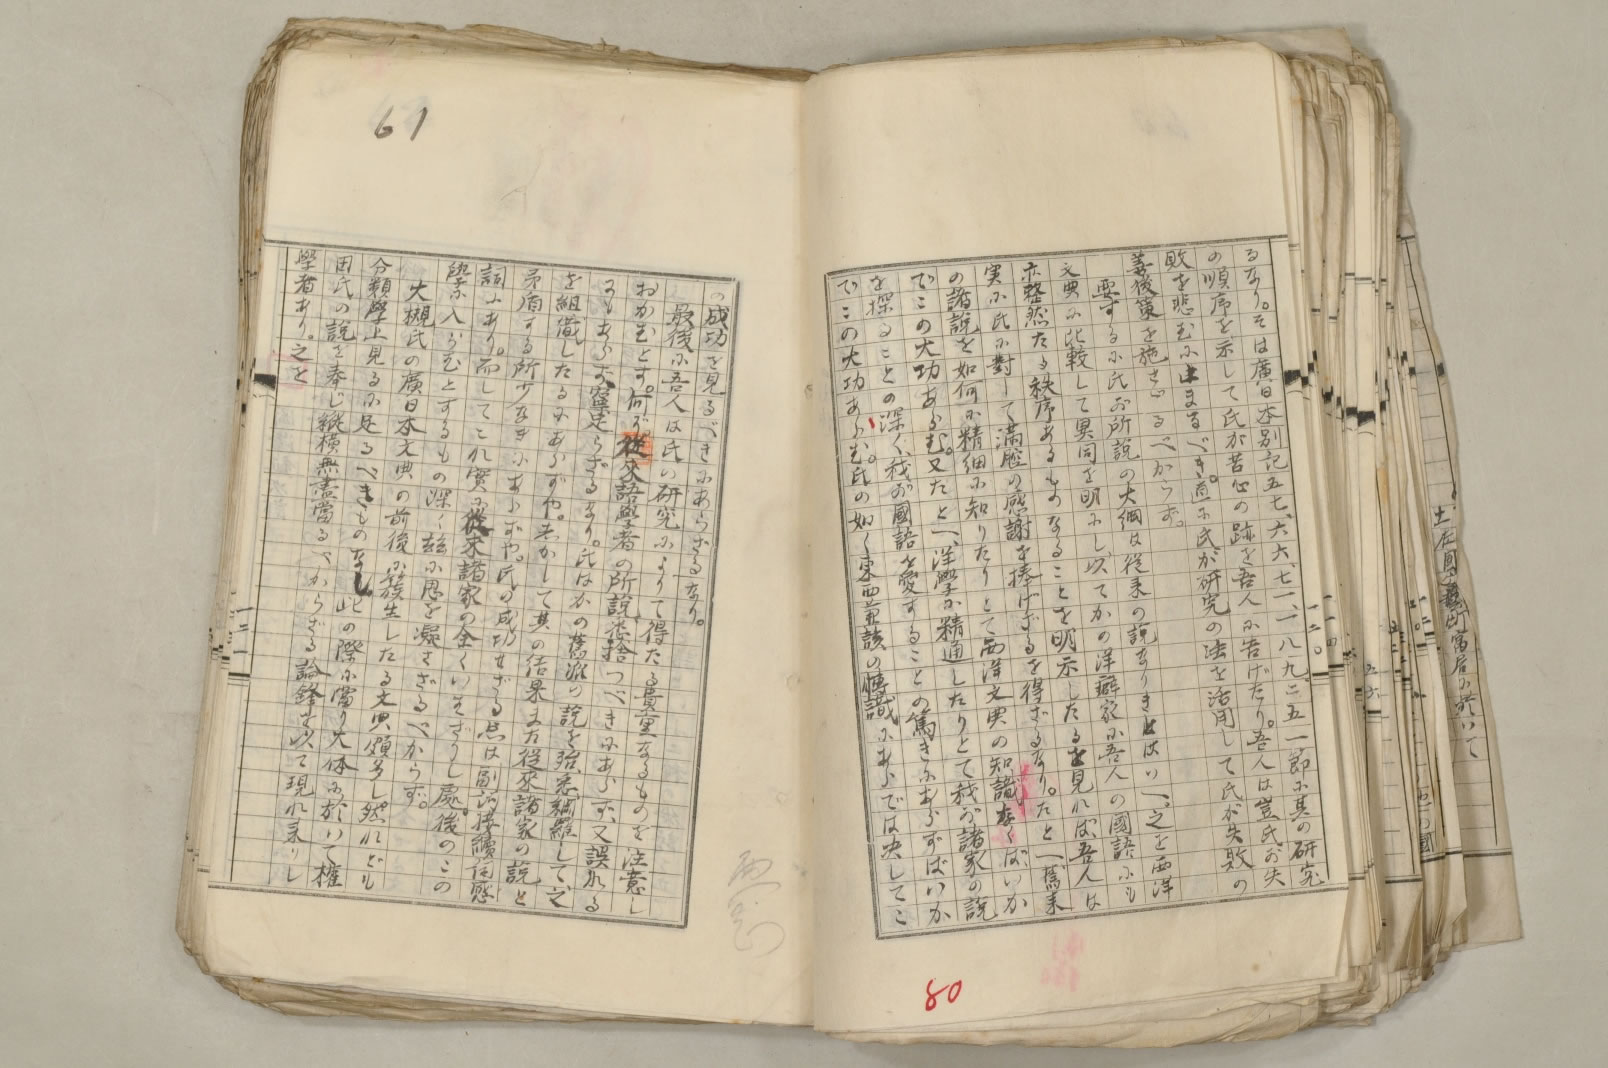 るなり。そは廣日本別記五七、六六、七一、一八九、二五一節に其の研究
の順序を示して氏が苦心の跡を吾人に告げたり。吾人は豈氏が失
敗を悲むに止まるべき。直に氏が研究の法を活用して氏が失敗の
善後策を施さゞるべからず。
要するに氏が所説の大綱は從来の説ありきとはいへ、之を西洋
文典に比較して異同を明にし以てかの洋癖家に吾人の國語にも
亦整然たる秩序あるものなることを明示したるを見れば、吾人は
実に氏に對して滿腔の感謝を捧げざるを得ざるなり。たとへ舊来
の諸説を如何に精細に知りたりとて西洋文典の知識なくばいか
でこの大功あらむ。又たとへ洋學に精通したりとて我が諸家の説
を探ることの深く、我が國語を愛することの篤きにあらずばいか
でこの大功あらむ。氏の如く東西兼該の博識にあらでは決してこ
80
61
の成功を見るべきにあらざるなり。
最後に吾人は氏の研究によりて得たる貴重なるものを注意し
おかむとす。何ぞ。從來語學者の所説
にもあらず、
を組織したるにあらずや。しかして其の結果また從來諸家の説と
矛盾する所少なきにあらずや。氏が成功せざる点は
詞にあり。而してこれ實に從来諸家の全くいはざりし處。後のこの
學に入らむとするもの深く茲に思を凝さざるべからず。
大槻氏の廣日本文典の前後に發生したる文典頗多し然れども
分類學上見るに足るべきものなし此の際に當り大体に於いて權
田氏の説を奉じ縱横無盡當るべからざる論鋒を以て現れ来りし
學者あり。之を
一二一
一二〇